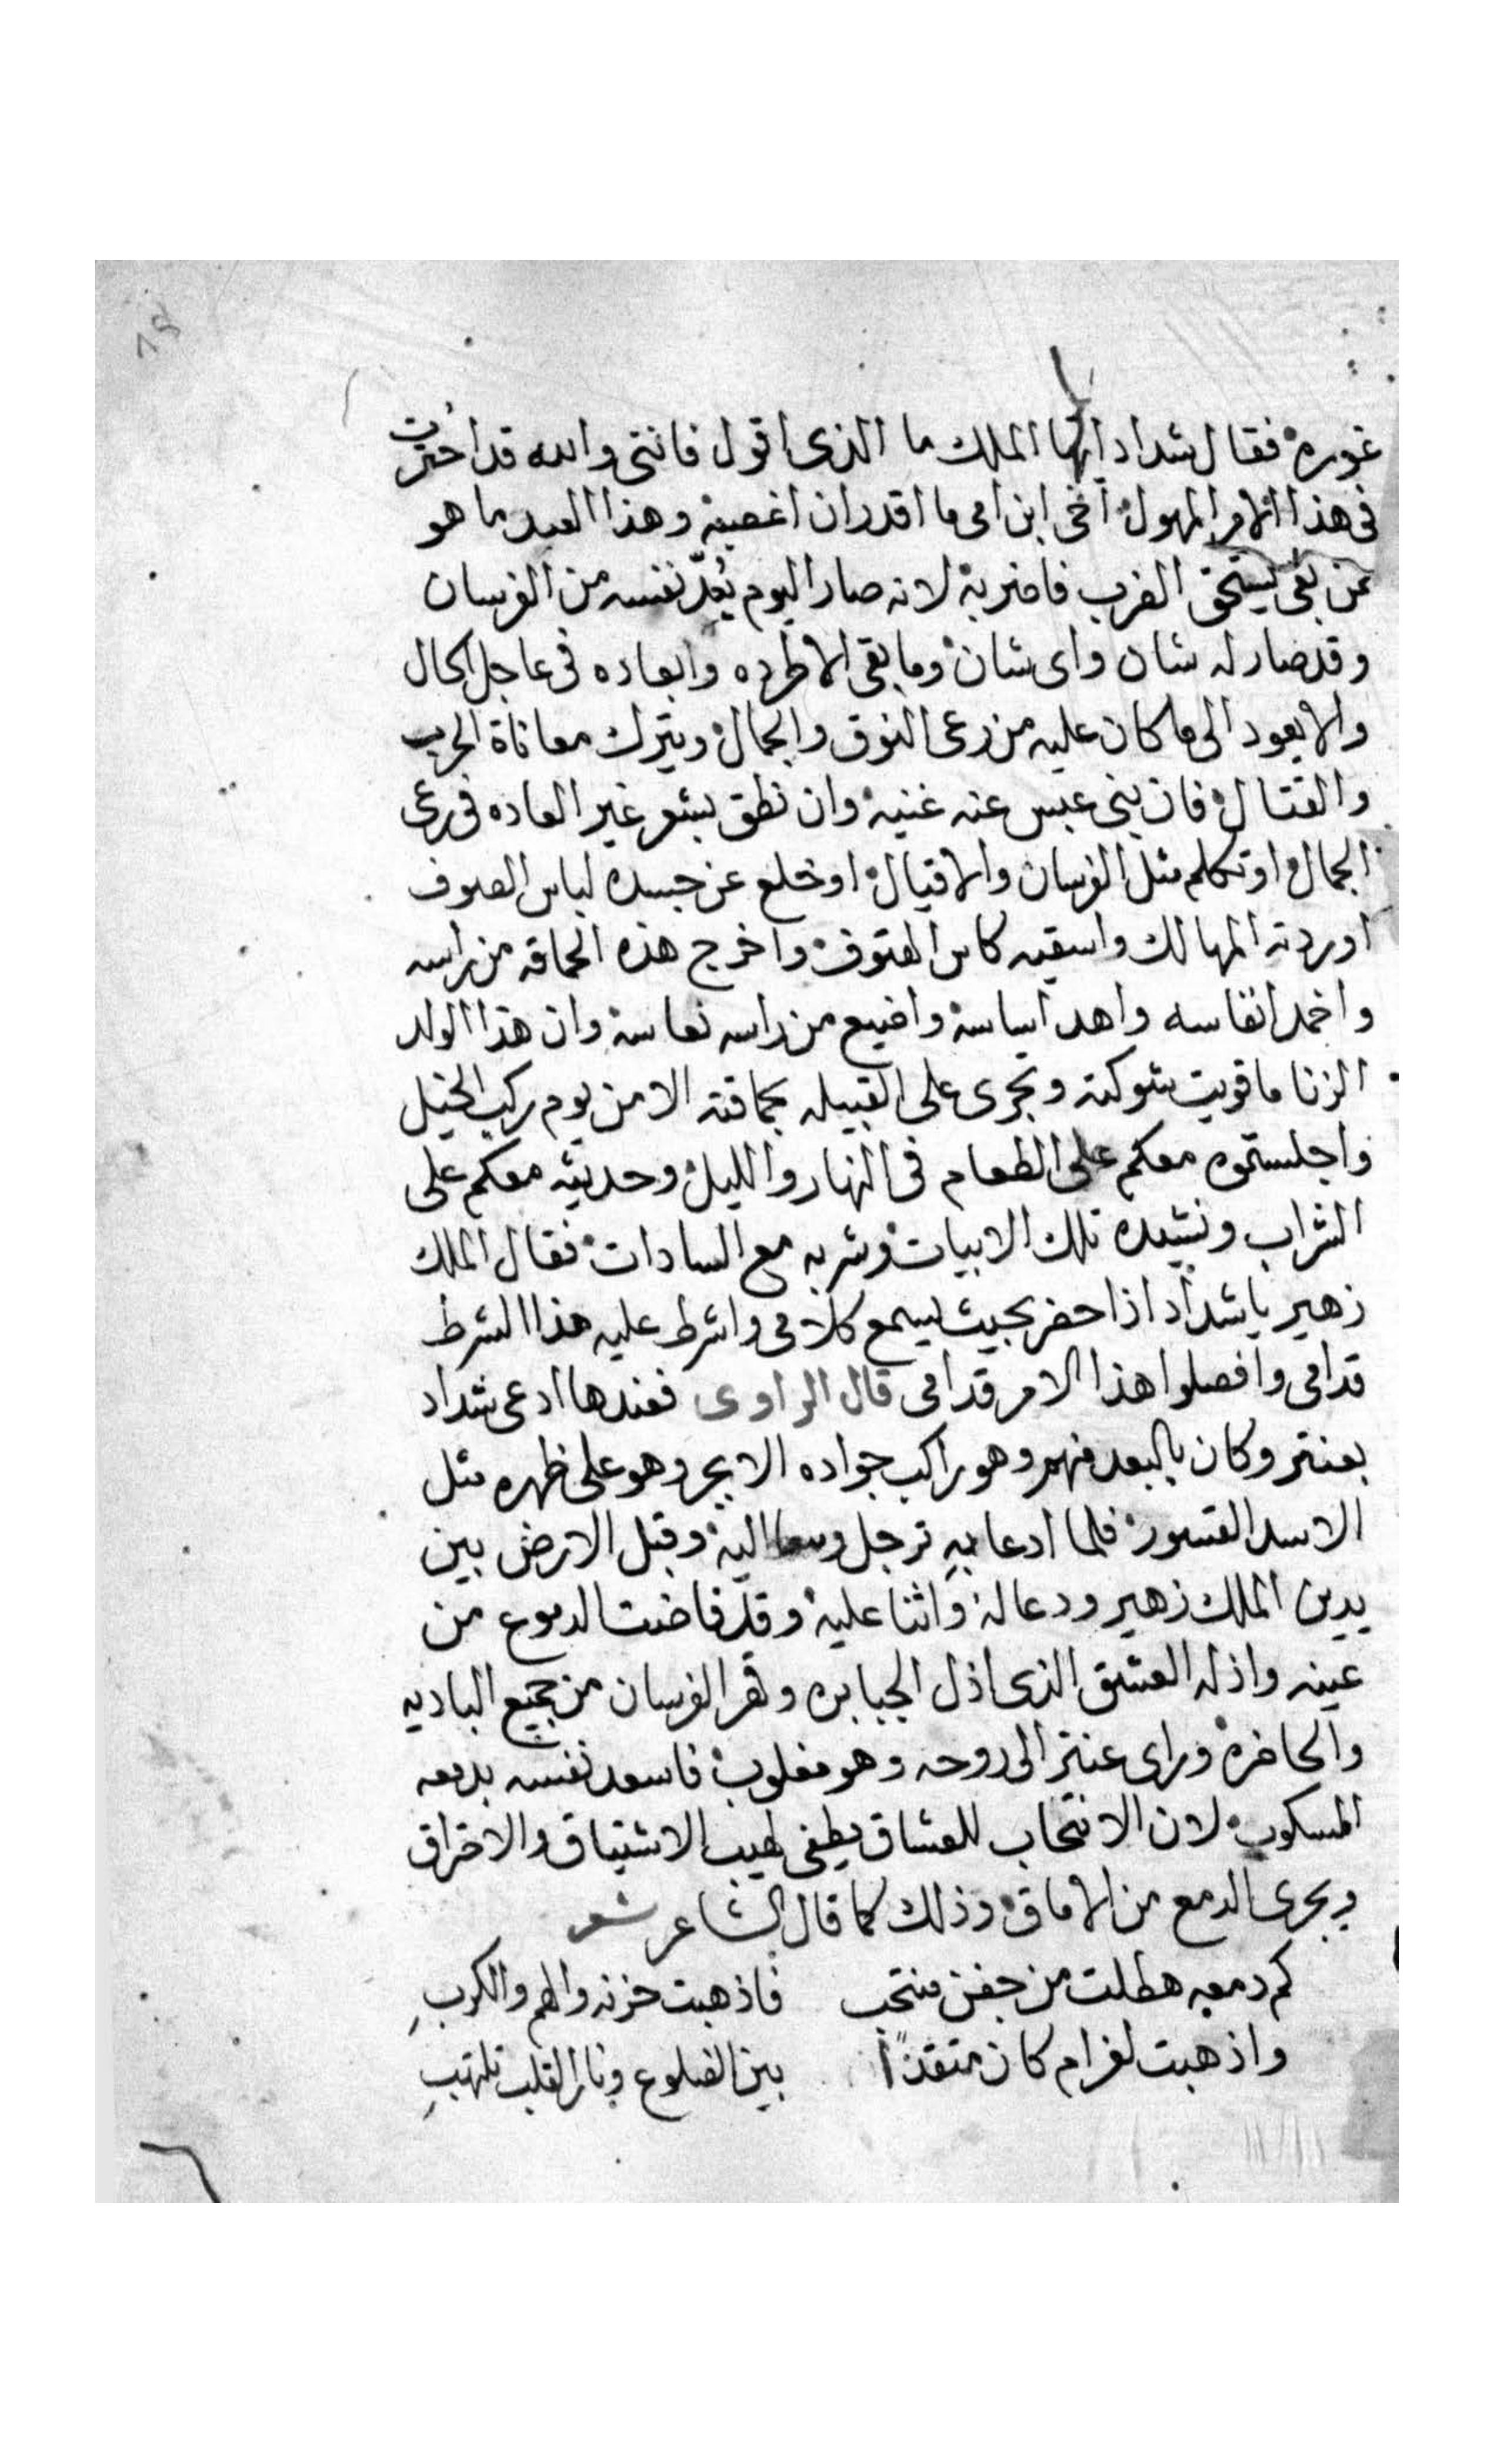 غوره فقال شداد ايها الملك ما الذى اقول فانتى والله قد احترت
فى هذا الامر المهول اخى ابن امى ما اقدر ان اغصبه وهذا العبد ما هو
ممن بقى يستحق الضرب فاضربه لانه صار اليوم يُعدّ نفسه من الفرسان
وقد صار له شان واى شان وما بقى الا طرده وابعاده فى عاجل الحال
والا يعود الى ما كان عليه من رعى النوق والجمال ويترك معاناة الحرب
والقتال فان بنى عبس عنه غنيه وان نطق بشعر غير العاده فى رعى
الجمال او تكلم مثل الفرسان والاقيال او خلع عن جسده لباس الصوف
اوردته المهالك واسقيه كاس الحتوف واخرج هذه الحماقه من راسه
واخمد انفاسه واهد اساسه واضيع من راسه نعاسه وان هذا الولد
الزنا ما قويت شوكته وتجرى على القبيله بحماقته الا من يوم ركب الخيل
واجلستموه معكم على الطعام فى النهار والليل وحديثه معكم على
الشراب ونشيده تلك الابيات وشربه مع السادات فقال الملك
زهير يا شداد اذا حضر بحيث يسمع كلامى واشرط عليه هذا الشرط
قدامى وافصلوا هذا الامر قدامى قال الراوى فعندها ادعى شداد
بعنتر وكان بالبعد منهم وهو راكب جواده الابجر وهو على ظهره مثل
الاسد القسور فلما ادعا به ترجل وسعا اليه وقبل الارض بين
يدين الملك زهير ودعا له واثنا عليه وقد فاضت الدموع من
عينه واذله العشق الذى اذل الجبابره وقهر الفرسان من جميع الباديه
والحاضره وراى عنتر الى روحه وهو مغلوب فاسعد نفسه بدمعه
المسكوب لان الانتحاب للعشاق يطفى لهيب الاشتياق والاحتراق
ويجرى الدمع من الاماق وذلك كما قال الشاعر شعر
كم دمعه هطلت من جفن منتحب فاذهبت حزنه والهم والكربِ
واذهبت لغرام كان متقدًا بين الضلوع ونار القلب تلتهبِ